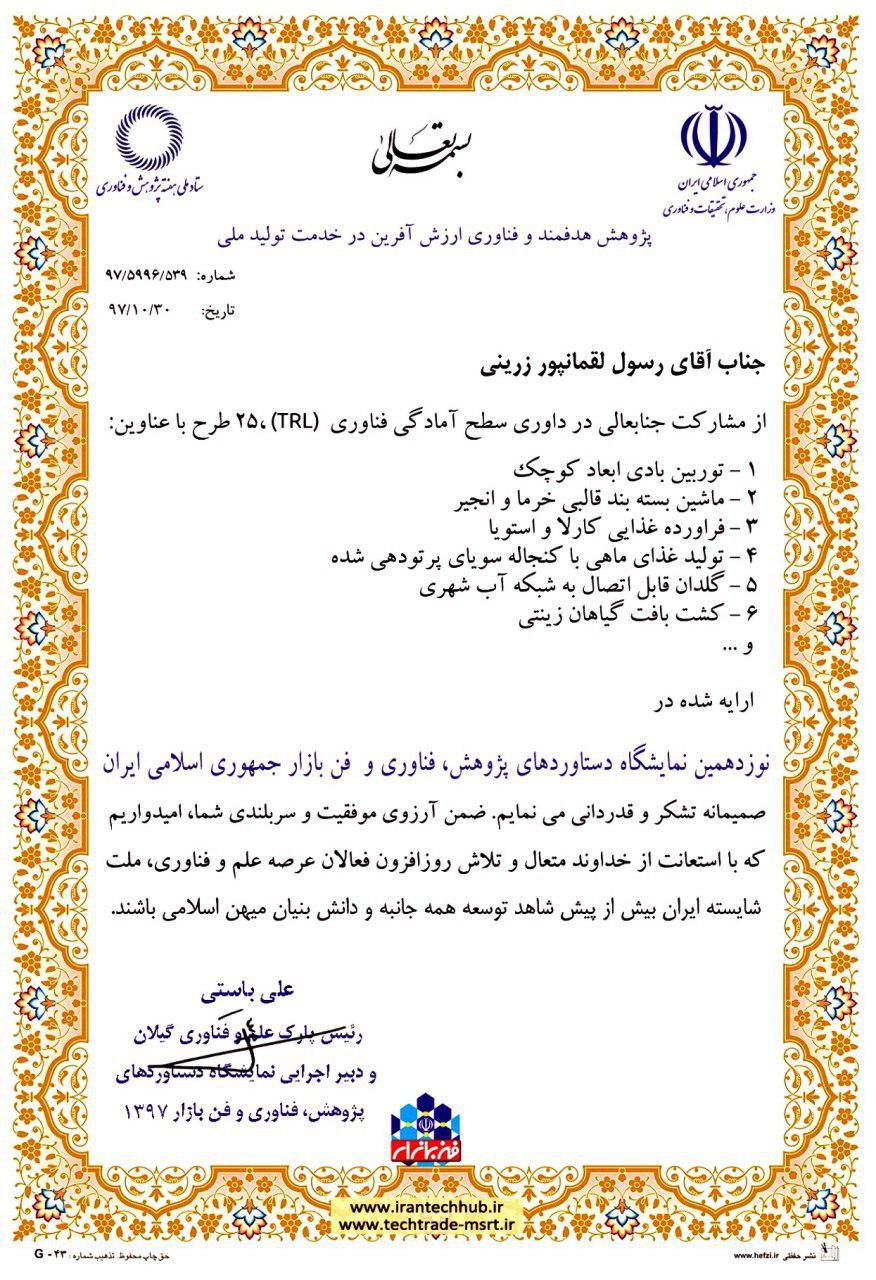 بسمه تعالی
جمهوری اسلامی ایران
وزارت علوم، تحقیقات و فناوری
ستاد ملی هفته پژوهش و فناوری
پژوهش هدفمند و فناوری ارزش آفرین در خدمت تولید ملی
شماره: ۹۷/۵۹۹۶/۵۳۹
تاریخ: ۹۷/۱۰/۳۰
جناب آقای رسول لقمانپور زرینی
از مشارکت جنابعالی در داوری سطح آمادگی فناوری (TRL)، ۲۵ طرح با عناوین:
۱ - توربین بادی ابعاد کوچک
۲ - ماشین بسته بند قالبی خرما و انجیر
۳ - فراورده غذایی کارلا و استویا
۴ - تولید غذای ماهی با کنجاله سویای پرتودهی شده
۵ - گلدان قابل اتصال به شبکه آب شهری
۶ - کشت بافت گیاهان زینتی
و ...
ارایه شده در
نوزدهمین نمایشگاه دستاوردهای پژوهش، فناوری و فن بازار جمهوری اسلامی ایران
صمیمانه تشکر و قدردانی می نمایم. ضمن آرزوی موفقیت و سربلندی شما، امیدواریم
که با استعانت از خداوند متعال و تلاش روزافزون فعالان عرصه علم و فناوری، ملت
شایسته ایران بیش از پیش شاهد توسعه همه جانبه و دانش بنیان میهن اسلامی باشند.
علی باستی
رئیس پارک علم و فناوری گیلان
و دبیر اجرایی نمایشگاه دستاوردهای
پژوهش، فناوری و فن بازار ۱۳۹۷
فن بازار
www.irantechhub.ir
www.techtrade-msrt.ir
نشر حفظی www.hefzi.ir
حق چاپ محفوظ. تذهیب شماره: G - ۴۳